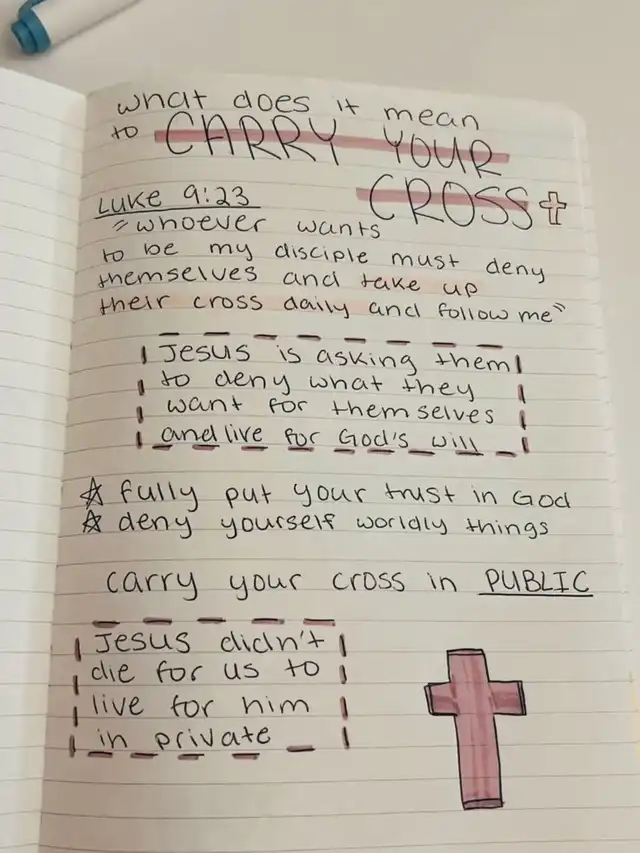 what does it mean
to CARRY YOUR
CROSS
Luke 9:23
"whoever wants
to be my disciple must deny
themselves and take up
their cross daily and follow me"
Jesus is asking them
to deny what they
want for themselves
and live for God's will
☆ fully put your trust in God
☆ deny yourself worldly things
carry your cross in PUBLIC
Jesus didn't
die for us to
live for him
in private